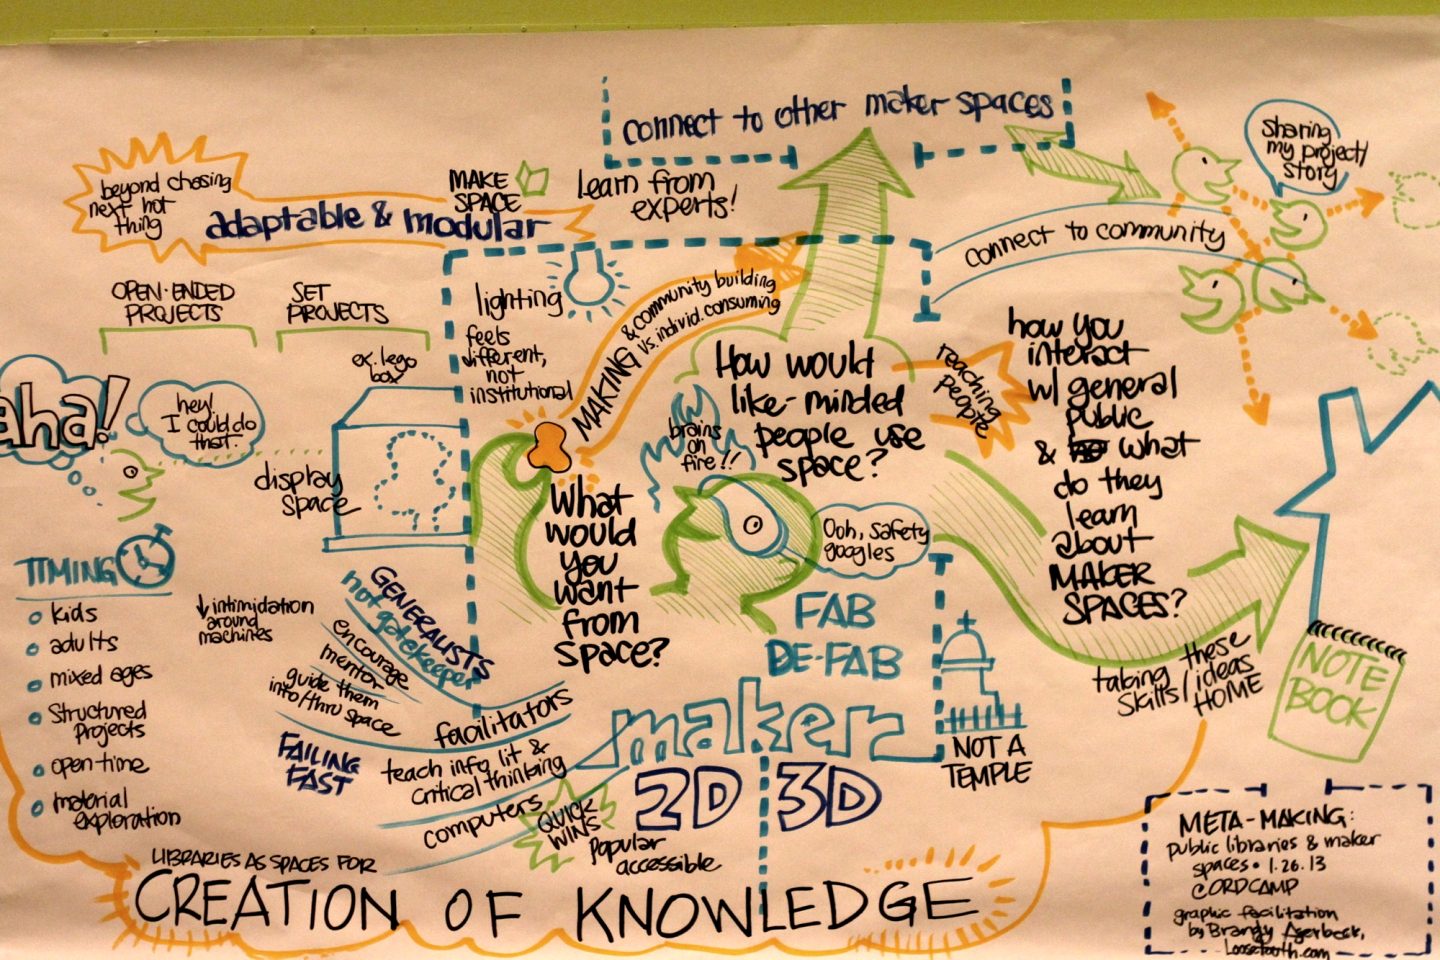 connect to other maker spaces
beyond chasing
next hot
thing
adaptable & modular
MAKE
SPACE
learn from
experts!
sharing
my project/
story
connect to community
OPEN-ENDED
PROJECTS
SET
PROJECTS
ex. lego
box
lighting
feels
different,
not
institutional
MAKING & community building
vs. individ. consuming
How would
like-minded
people use
space?
reaching
people
how you
interact
w/ general
public
& what
do they
learn
about
MAKER
SPACES?
aha!
hey!
I could do
that
display
space
brains
on
fire!!
What
would
you
want
from
space?
Ooh, safety
googles
TIMING
kids
adults
mixed ages
Structured
Projects
open-time
material
exploration
↓ intimidation
around
machines
GENERALISTS
not gatekeeper
encourage
mentor
guide them
into/thru space
facilitators
FAILING
FAST
teach info lit &
critical thinking
computers
QUICK
WINS
popular
accessible
FAB
DE-FAB
maker
2D 3D
NOT A
TEMPLE
taking these
skills/ideas
HOME
NOTE
BOOK
LIBRARIES AS SPACES FOR
CREATION OF KNOWLEDGE
META-MAKING:
public libraries & maker
spaces • 1.26.13
@ORDCAMP
graphic facilitation
by Brandy Agerbeck,
Loosetooth.com